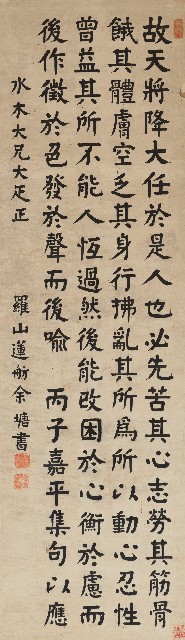 故天將降大任於是人也必先苦其心志勞其筋骨
餓其體膚空乏其身行拂亂其所為所以動心忍性
曾益其所不能人恆過然後能改困於心衡於慮而
後作徵於色發於聲而後喻 丙子嘉平集句以應
水木大兄大疋正 羅山蓮舫余塘書